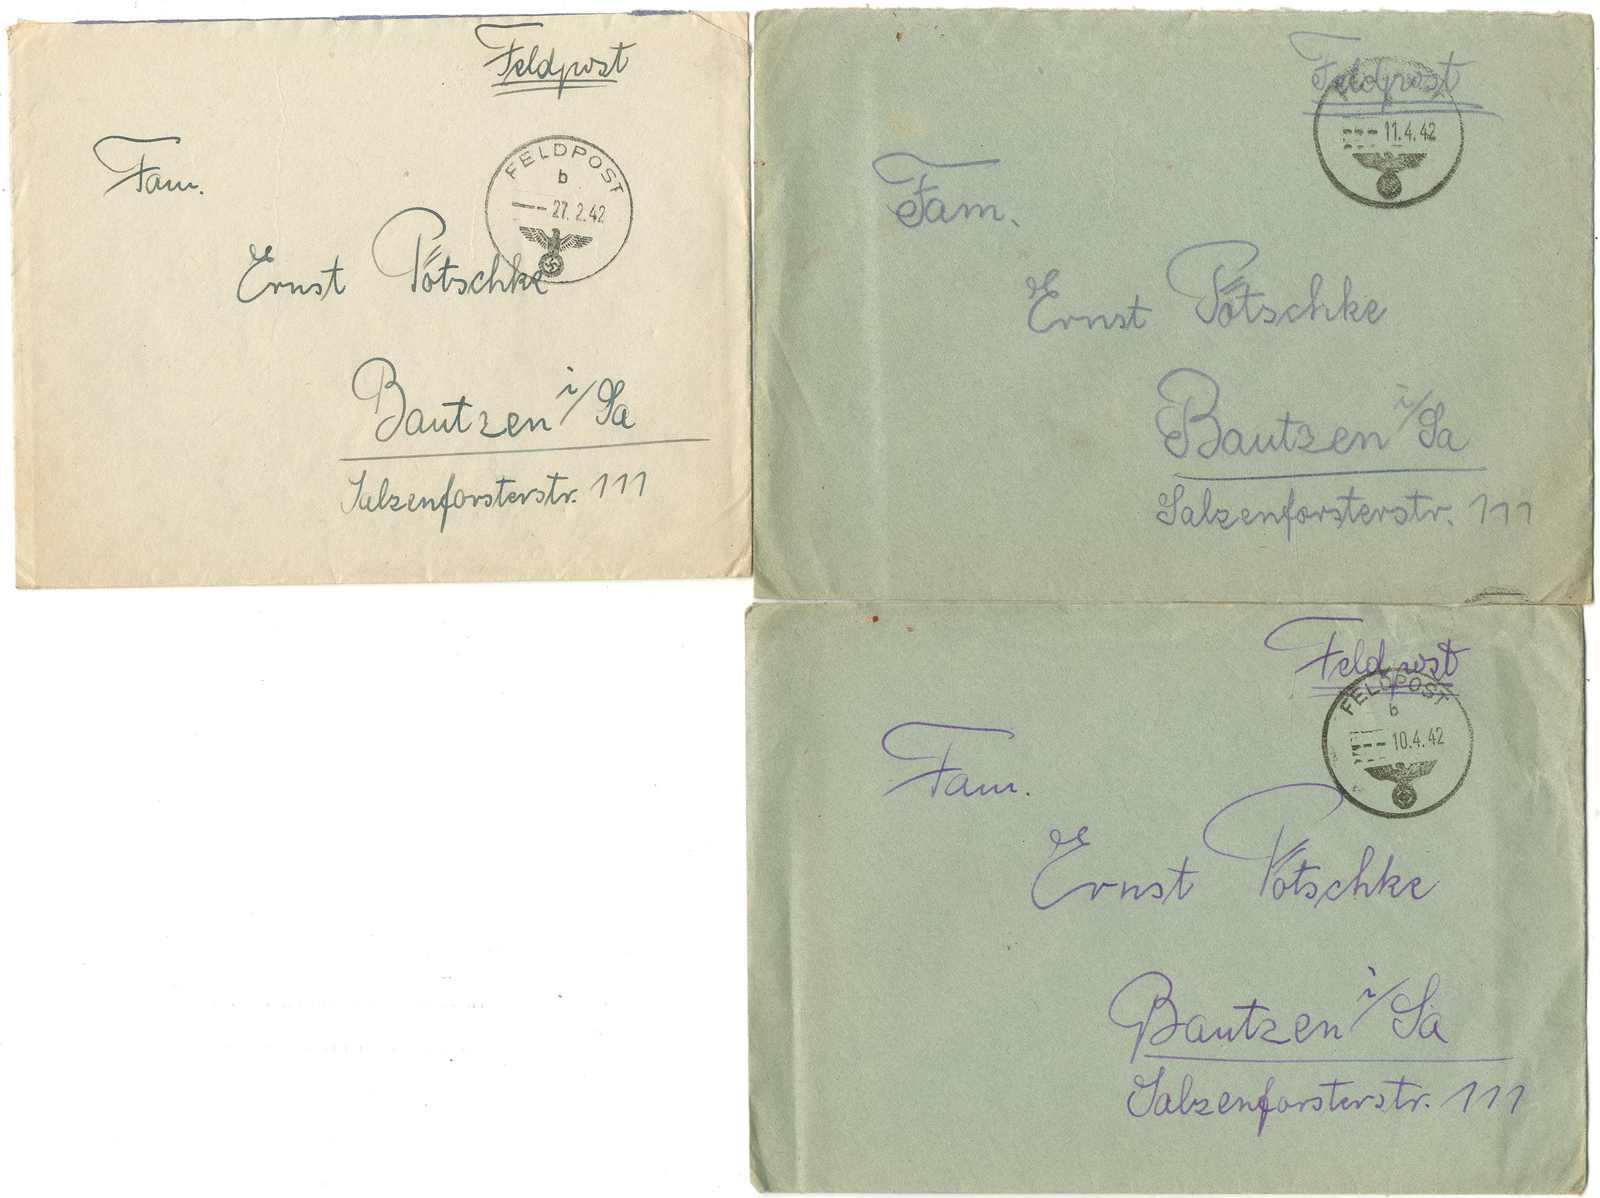 Feldpost
FELDPOST
b
27.2.42
Fam.
Ernst Pötschke
Bautzen i/Sa
Salzenforsterstr. 111
Feldpost
11.4.42
Fam.
Ernst Pötschke
Bautzen i/Sa
Salzenforsterstr. 111
Feldpost
FELDPOST
b
10.4.42
Fam.
Ernst Pötschke
Bautzen i/Sa
Salzenforsterstr. 111